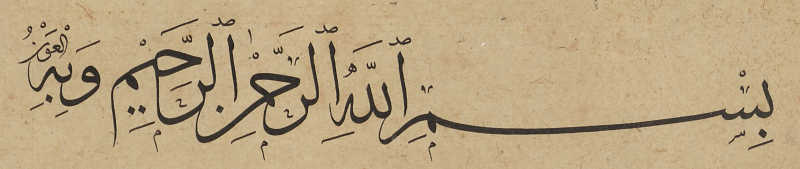 بِسْمِ ٱللَّهِ ٱلرَّحْمٰنِ ٱلرَّحِيْمِ وَبِهِ الْعَوْنُ